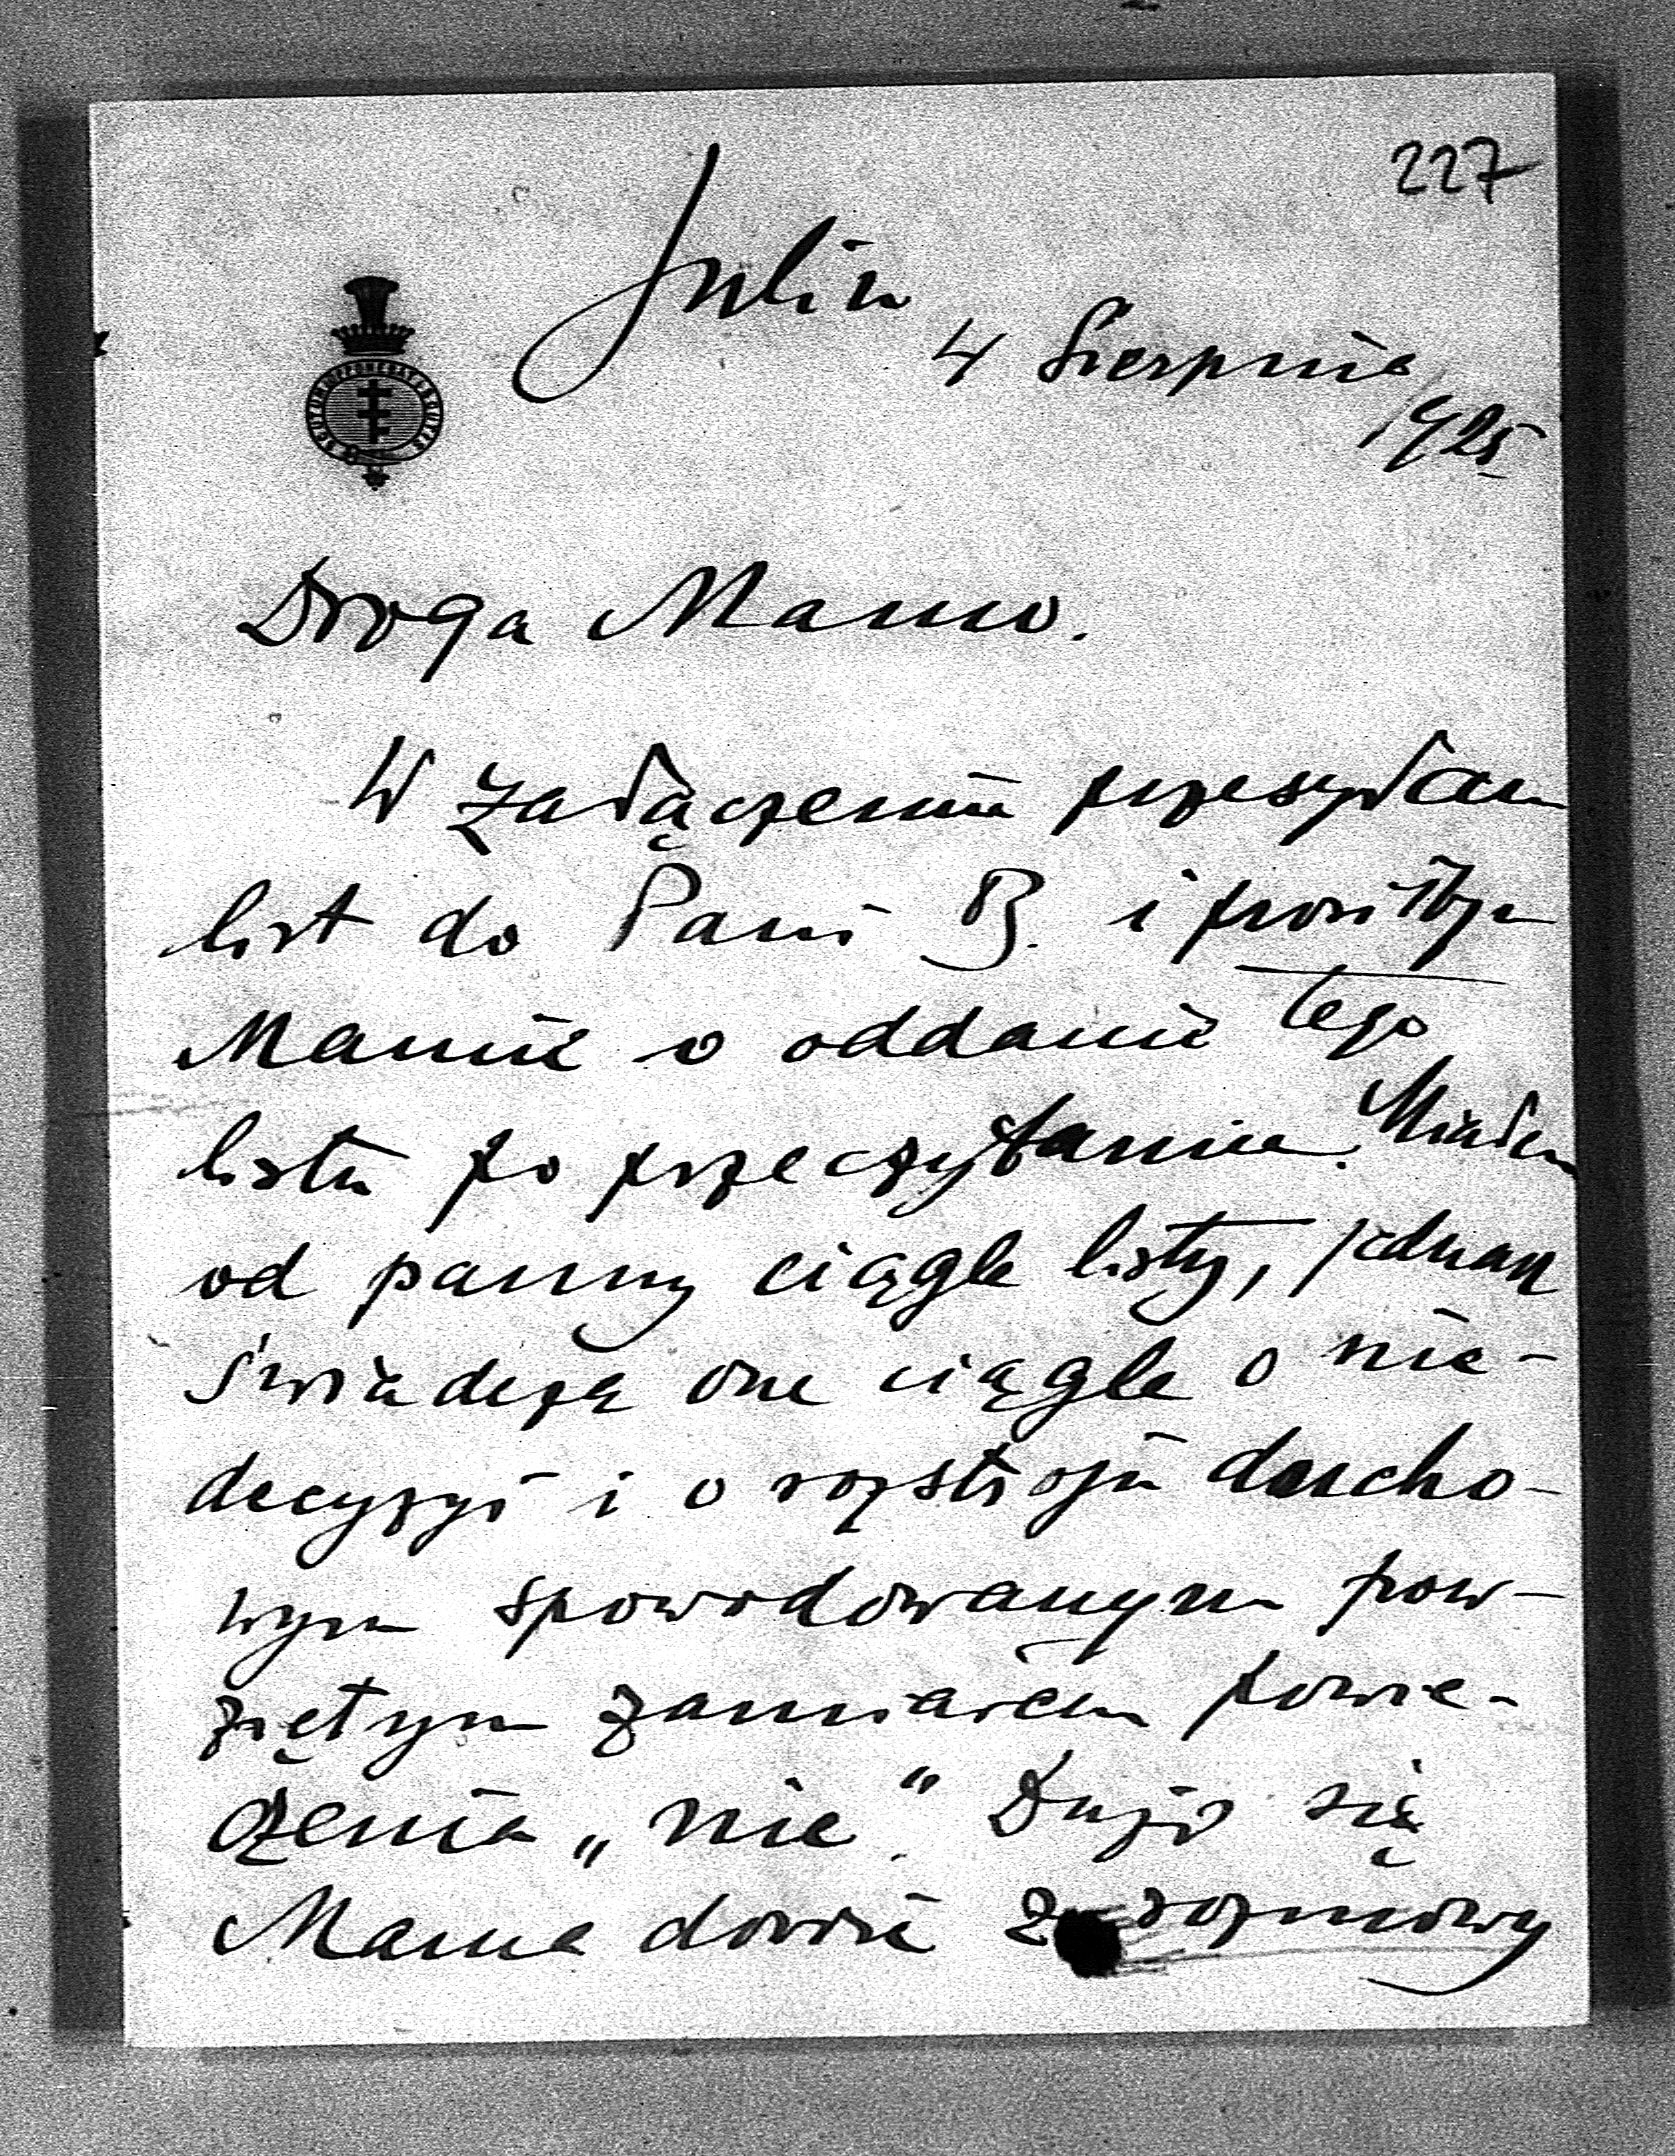 227
Julin
4 Sierpnia
1925
Droga Mamo.
W załączeniu przesyłam
list do Pani B. i prosiłbym
Mamie o oddanie tego
listu po przeczytaniu. Miałem
od panny ciągle listy, jednak
świadczą one ciągle o nie-
decyzyi i o rozstroju ducho-
wym spowodowanym pow-
ziętym zamiarem powie-
dzenia „nie". Dużo się
Mama dowie z rozmowy